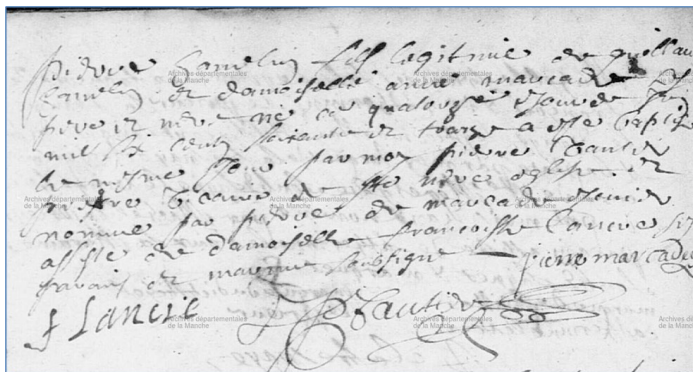 pierre hamelin fils legitime de guillau
hamelin et damoiselle anne marcade ses
pere et mere né le quatorze jour de
mil six cents soixante et traize a esté baptisé
le mesme jour par moy pierre Gautier
de Ste mere eglise et
nommé par pierre de marcade
assisté de damoiselle francoisse Lancre
parain et maraine soubsigné pierre marcade
f Lancre Gautier